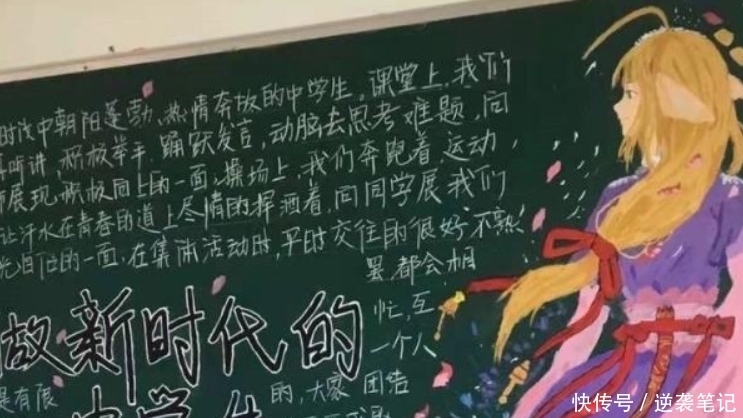 时代中朝阳蓬勃、热情奔放的中学生。课堂上,我们
听讲,积极举手,踊跃发言,动脑去思考难题,向
展现积极向上的一面。操场上,我们奔跑着,运动
让汗水在青春的道上尽情的挥洒着,向同学展我们
的一面。在集体活动时,平时交往的很好 不熟
都会相
忙,互
一个人
做新时代的
是有限
的,大家 团结
中学生
快传号/逆袭笔记